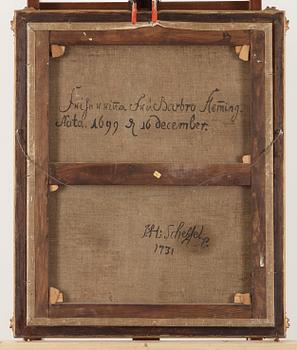 Friherrinna Fru Barbro Fleming.
Nata. 1699 d 16 December.
JH: Scheffel P.
1731